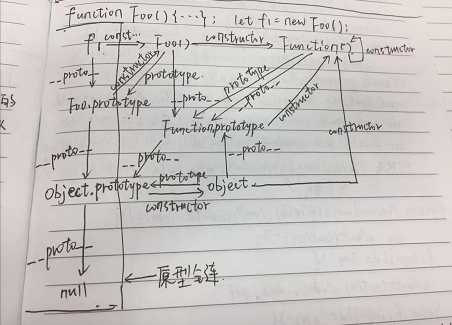 function Foo() {...}; let f1 = new Foo();
f1 const... Foo() constructor Function() constructor
__proto__ constructor prototype __proto__ prototype __proto__ constructor
Foo.prototype
Function.prototype constructor constructor
__proto__ __proto__ __proto__
Object.prototype prototype object
constructor
__proto__
null 原型全连